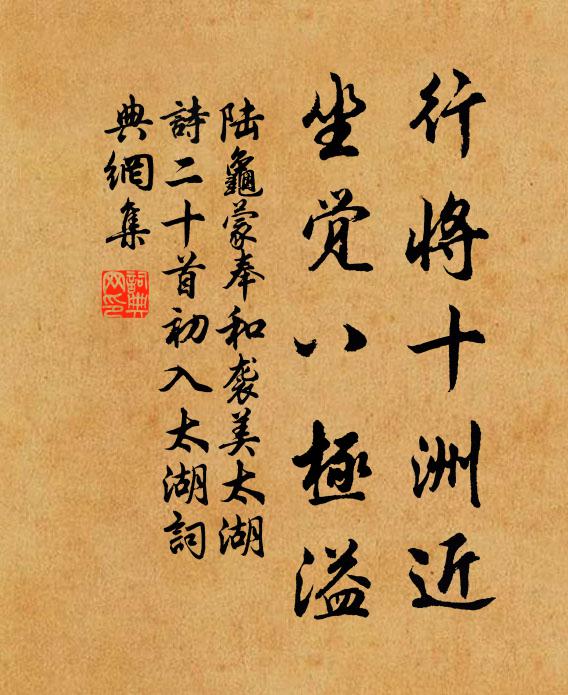 行将十洲近
坐觉八極溢
陆龜蒙奉和袭美太湖
詩二十首初入太湖詞
典網集
詞典网印